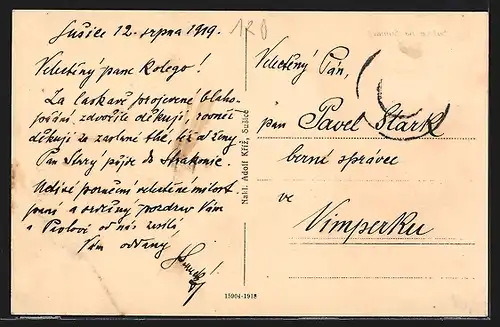 Sušice 12. srpna 1919.
120
Velectěný pane kolego!
Za laskavě projevené blaho-
přání, zdvořile děkuji, rovněž
děkuji za zaslané též od ženy
Pan Starý půjde do Strakonic.
Uctivé poručení velectěné milost
paní a srdečný pozdrav Vám
a Pavlovi od nás zasílá
Vám oddaný
Nakl. Adolf Kříž, Sušice
Velectěný Pán,
pan Pavel Stárk
berní správce
ve
Vimperku
15904-1918